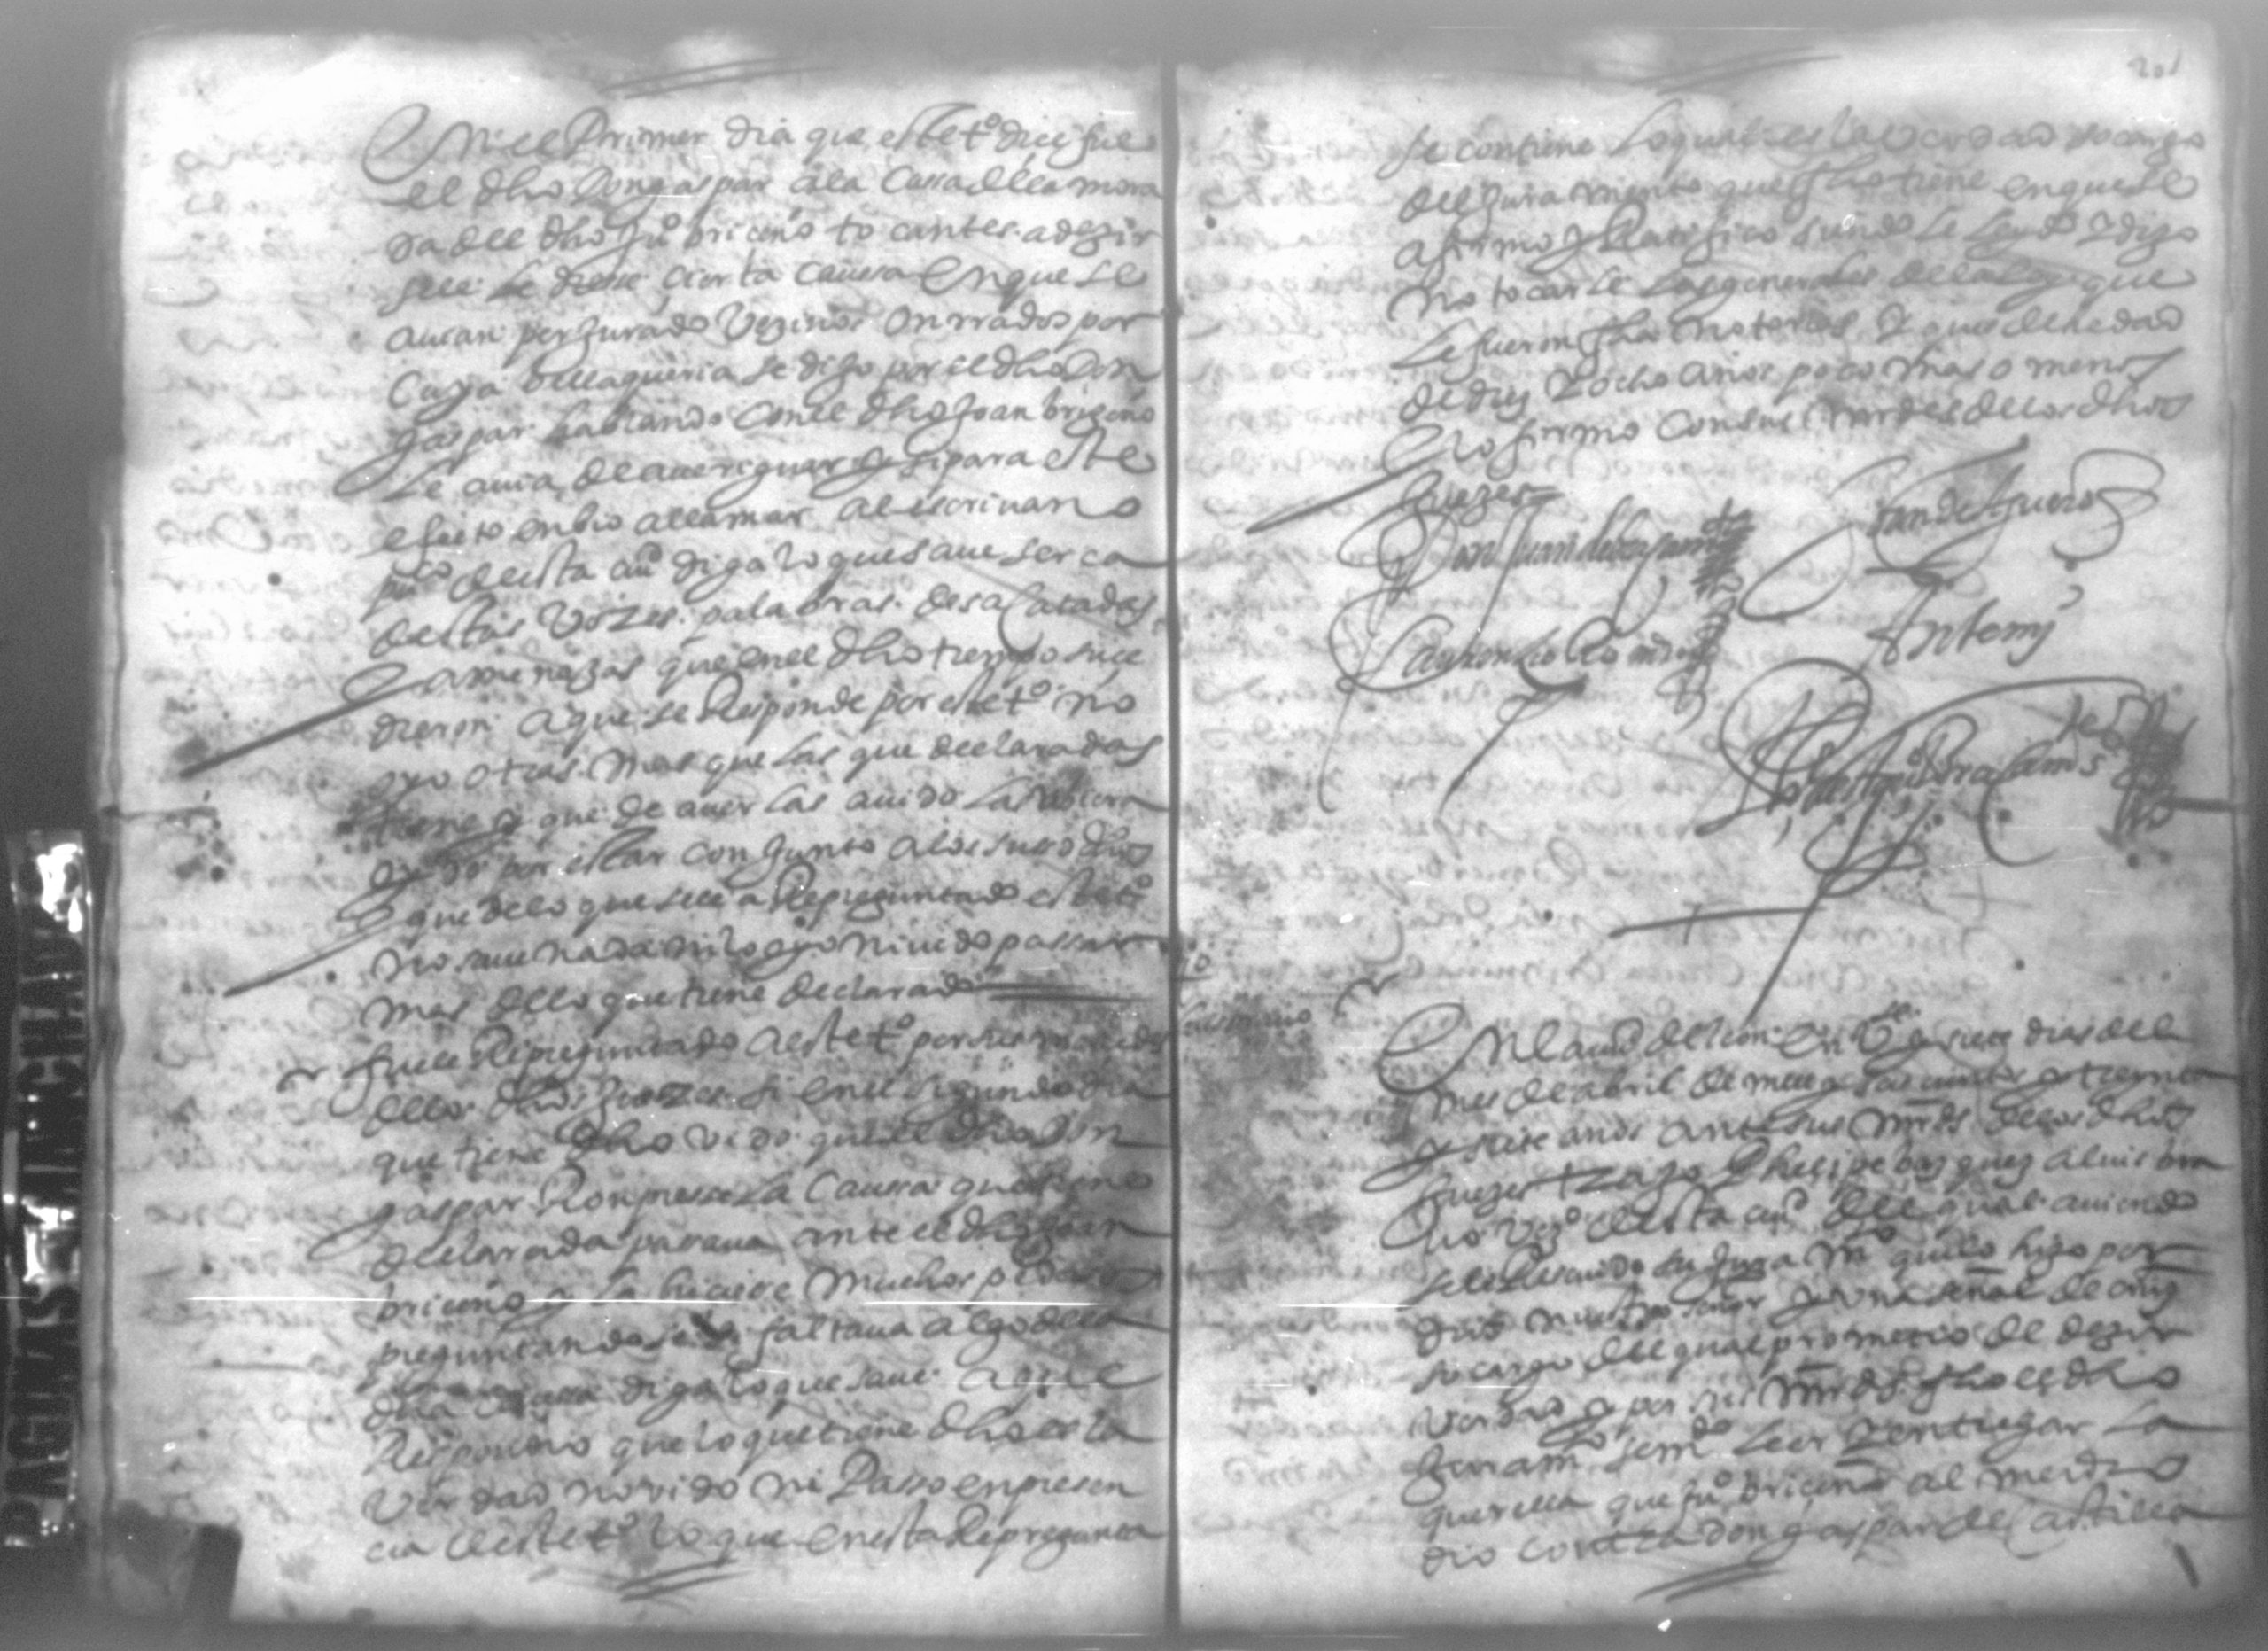 En el Primer dia que este tº dice fue
el dho Don gaspar a la Cassa de la mora
da del dho Juº briceño to cantes a dezir
sele le diese cierta Caussa en que se
auian perjurado Vezinos Onrrados por
Cuya bellaqueria se dijo por el dho Don
gaspar hablando Con el dho Joan briçeño
Se auia de aueriguar y si para este
efecto enbio a llamar al escriuano
puco desta ciud diga lo que saue serca
destas Vozes palabras desacatadas
E amenazas que en el dho tiempo suce
dieron a que se Responde por este tº no
oyo otras mas que las que declaradas
tiene y que de auer las auido las ubiera
oydo por estar conjunto a los suso dhos
E que de lo que se le a Repreguntado este tº
no saue nada ni lo oyo ni vido passar
mas dello que tiene declarado
fuele Repreguntado a este tº por sus mercedes
de los dhos Juezes si en el segundo dia
que tiene dho vido que el dho Don
gaspar Ronpiesse la Caussa que tiene
declarada passaua ante el dho Joan
briceño y la hiciese muchos pedasos
preguntandose si faltaua algo della
dha Caussa diga lo que saue a que
Respondio que lo que tiene dho es la
Verdad no vido ni Passo en presen
cia deste tº lo que en esta Repregunta
201
se contiene Lo qual es la Verdad so cargo
del Juramento que fho tiene en que se
afirmo y Ratifico siendole leydo y dijo
no tocarle las generales de la ley que
le fueron fhas notorias y que es de hedad
de diez y ocho años poco mas o menos
E lo firmo Con sus mrdes de los dhos
Juezes
Don Juan de
Juan de Aguero
Antemy
tº
En la ciud de leon en Vte y siete dias del
mes de abril de mill y seiscientos y treinta
y siete años ante sus mrds de los dhos
Juezes trajo Phelipe bazquez a luis bra
uo vezº desta ciud del qual auiendo
sele Resceuido su Juramtº que lo hizo por
dios nuestro señor y vna señal de cruz
so cargo del qual prometio de dezir
verdad y por sus mrds fho el dho
Juramtº se mdo leer y entregar la
querella que Juº briceño al meidaº
dio contra don gaspar del castillo